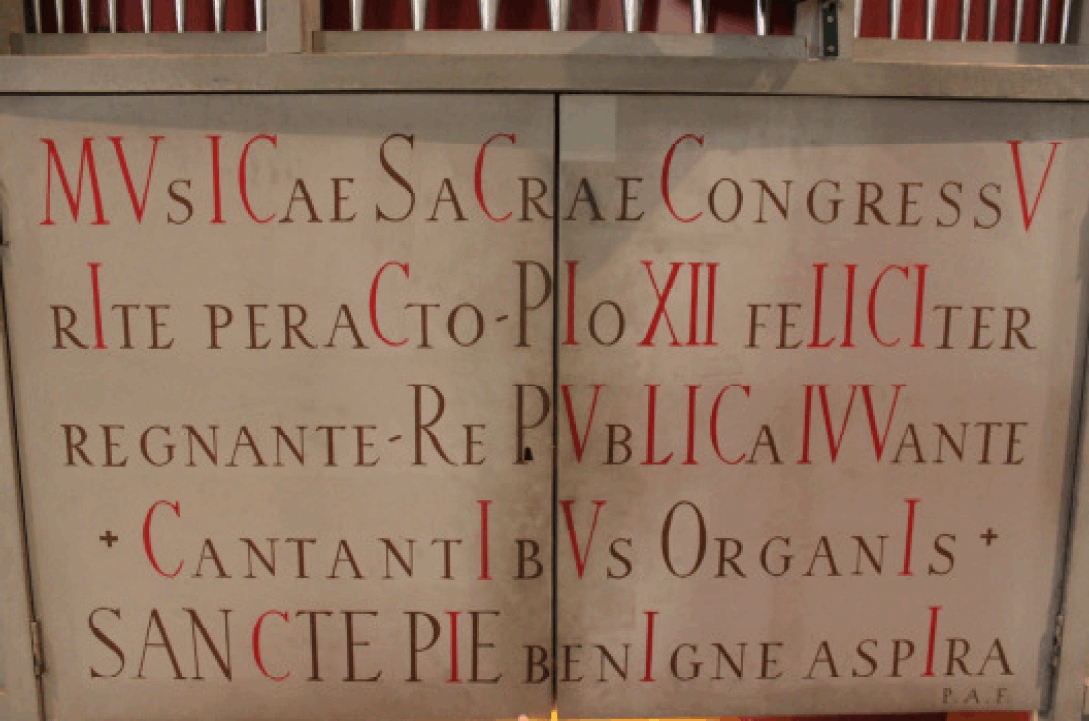 MVsICAE SACRAE CONGRESSV
RITE PERACTO-PIO XII FELICITER
REGNANTE-RE PVBLICA IVVANTE
+ CANTANTIBVS ORGANIS +
SANCTE PIE BENIGNE ASPIRA
P.A.F.